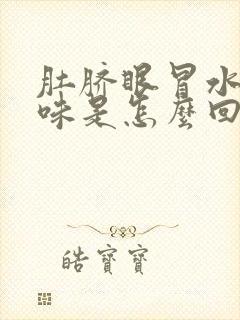 肚脐眼冒水
味是怎麼回
皓寶寶